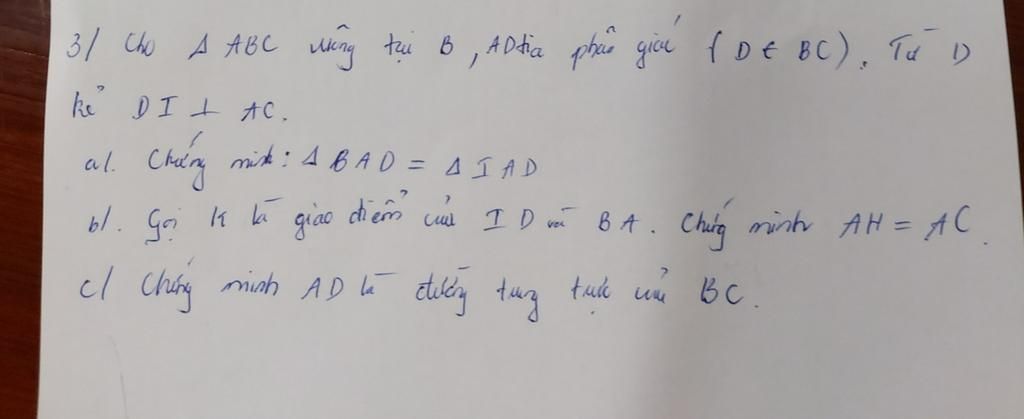 3/ Cho Δ ABC vuông tại B, AD tia phân giác (D ∈ BC). Từ D
kẻ DI ⊥ AC.
a/. Chứng minh: Δ BAD = Δ IAD
b/. Gọi K là giao điểm của ID và BA. Chứng minh AH = AC.
c/ Chứng minh AD là đường trung trực của BC.